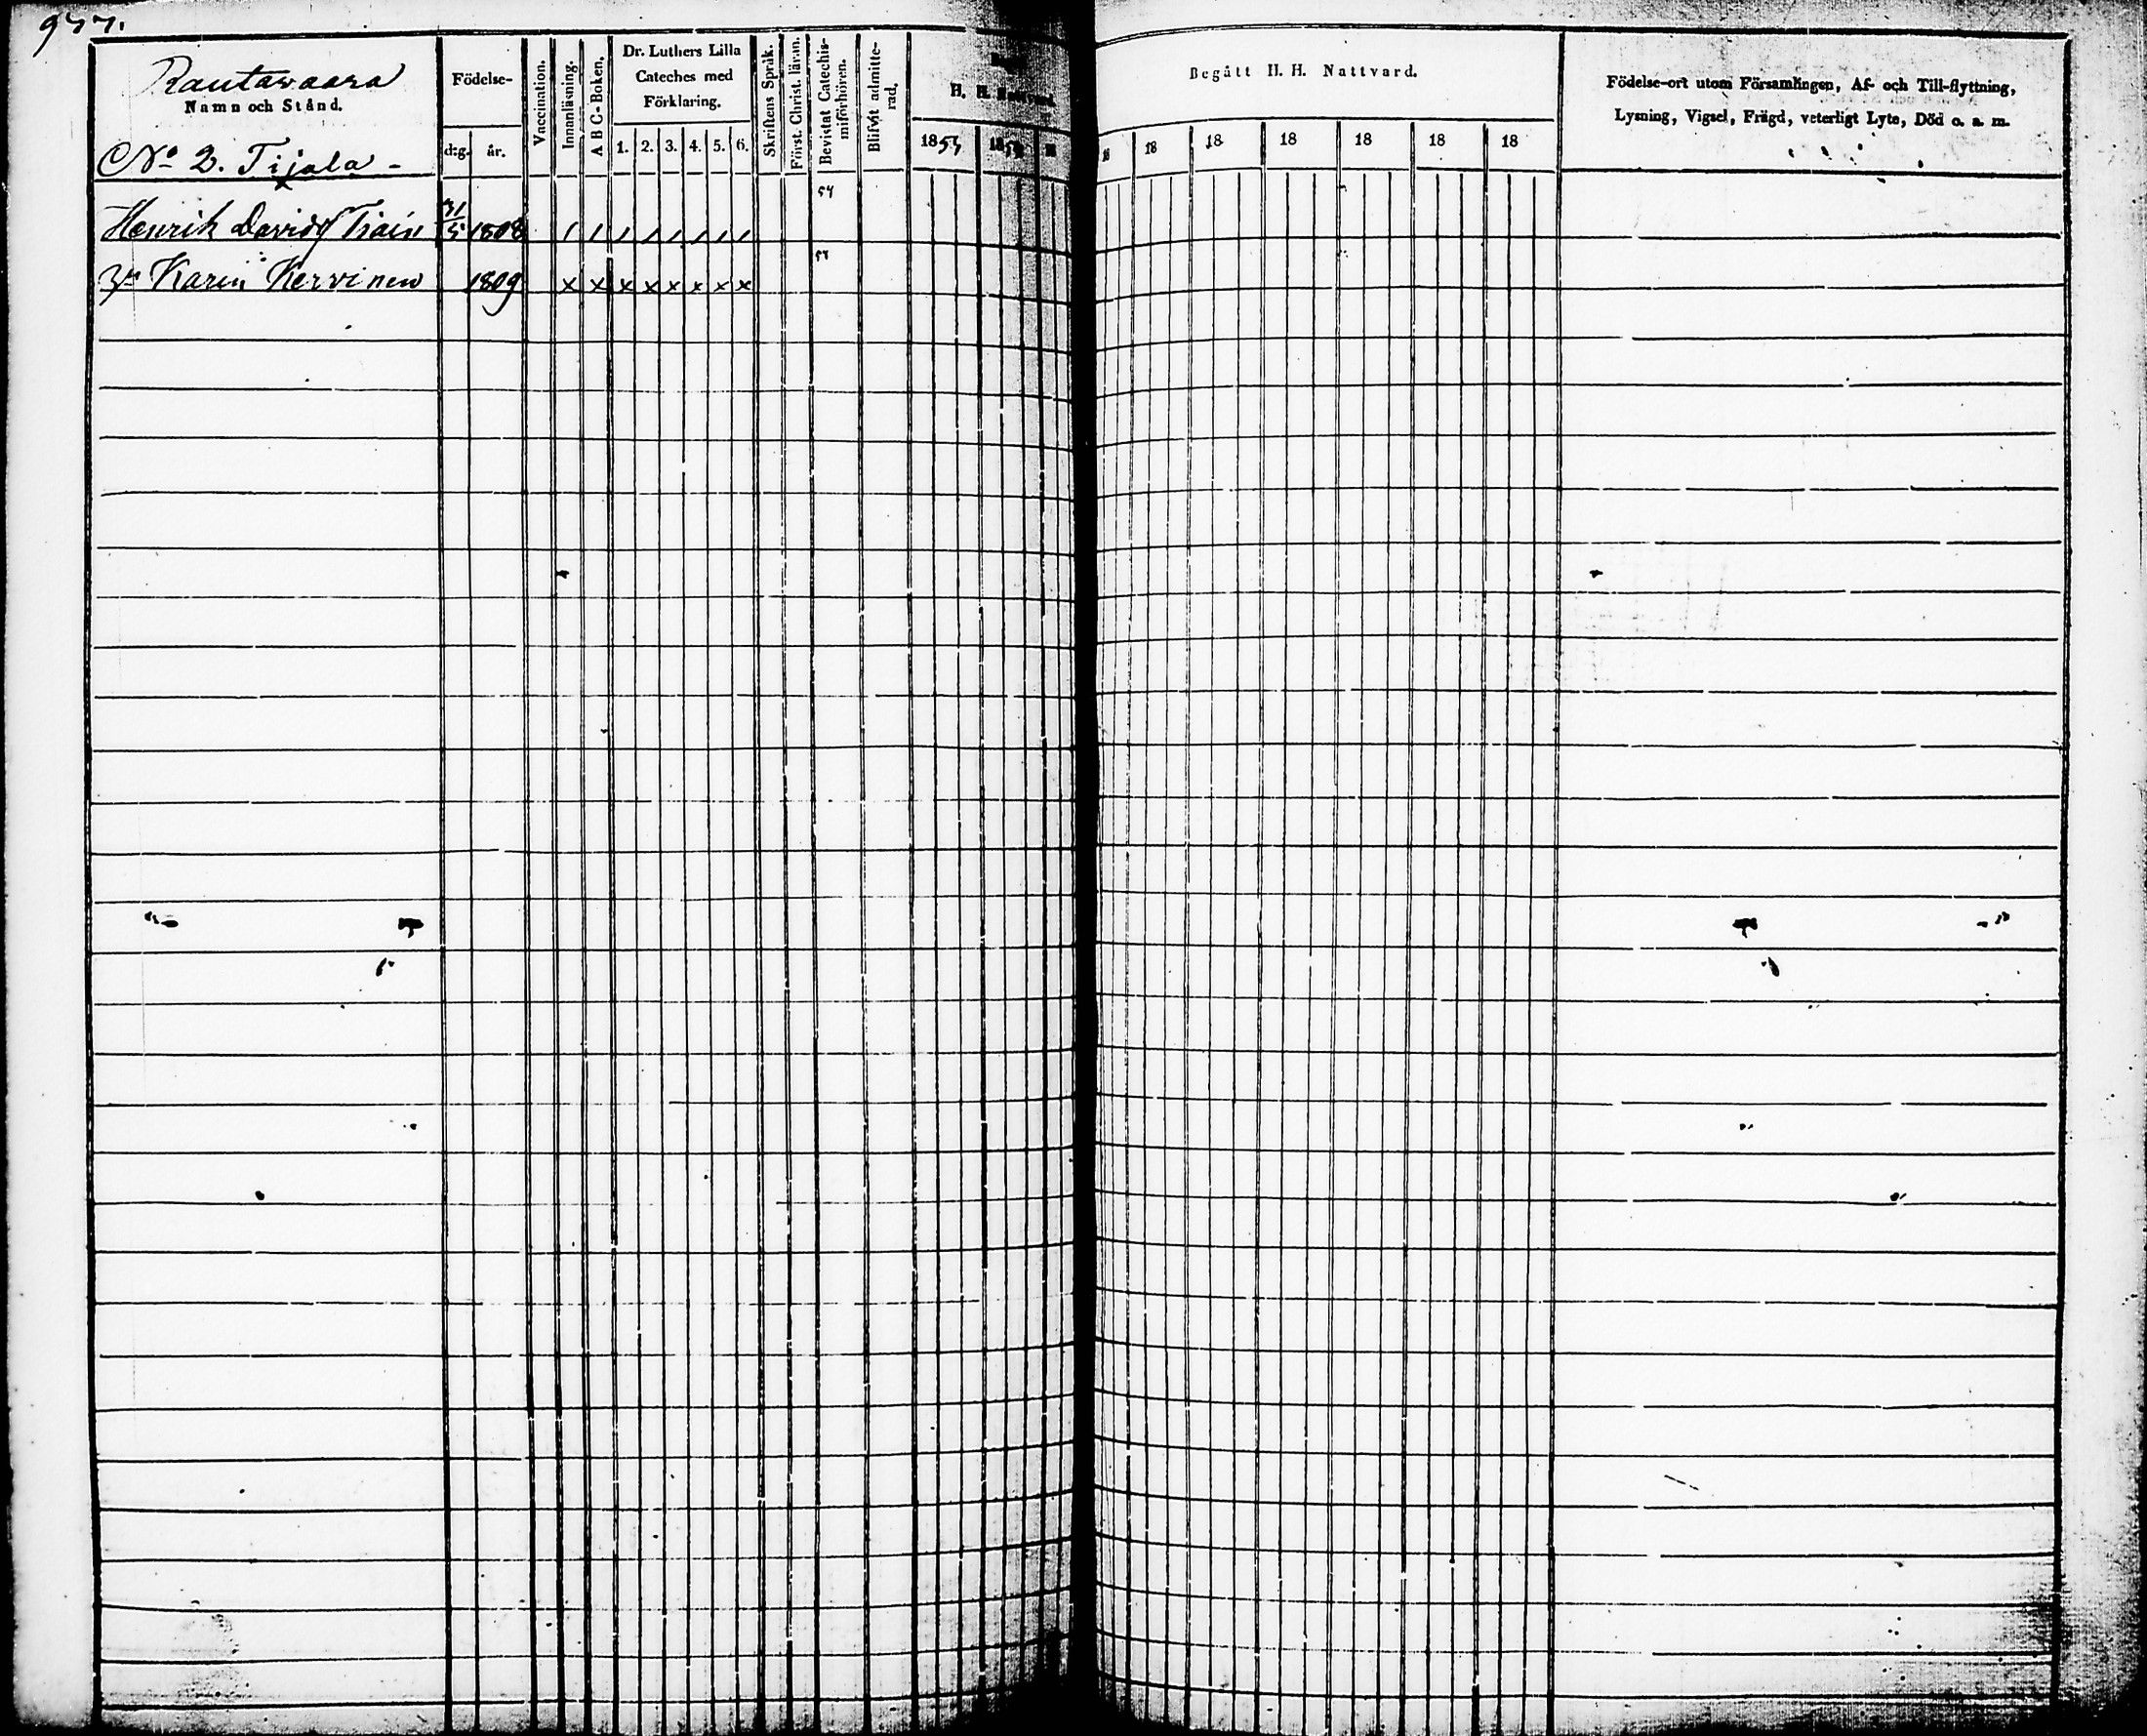 977.
Rautavaara
Namn och Stånd.
No 2. Tijala -
Födelse-
dag. år.
Vaccination.
Innanläsning.
A B C-Boken.
Dr. Luthers Lilla
Cateches med
Förklaring.
1. 2. 3. 4. 5. 6.
Skriftens Språk.
Förstr. Christ. läran.
Bevistat Catechis-
miförhören.
Blifvit admitte-
rad.
H. H. Nattvard
1853 1854
Begått H. H. Nattvard.
18 18 18 18 18 18 18
Födelse-ort utom Församlingen, Af- och Till-flyttning,
Lysning, Vigsel, Frägd, veterligt Lyte, Död o. a. m.
Henrik Davids Train 31/5 1808 / / / / / / / / 54
Karin Kervinen 1809 x x x x x x x x